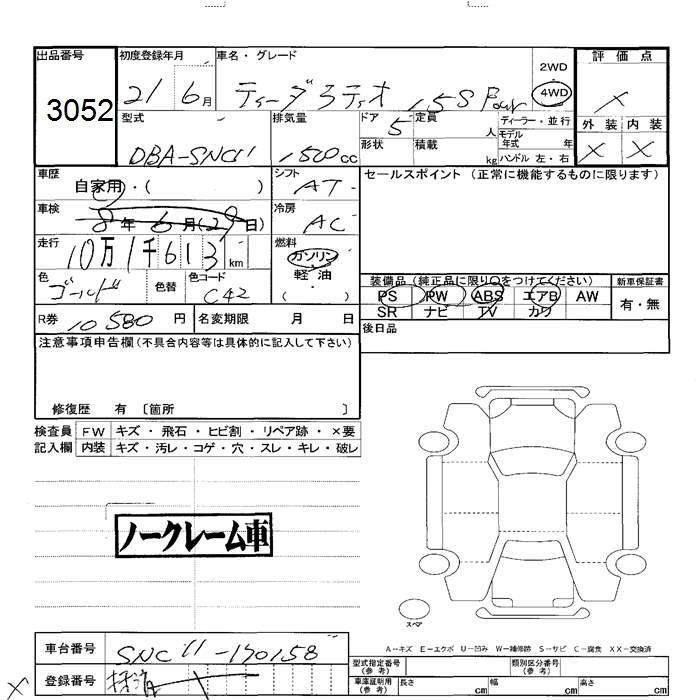 出品番号 初度登録年月 車名・グレード 2WD 評価点
3052 21 6月 ティーダラティオ 15S Four 4WD ×
型式 排気量 ドア 定員 ディーラー・並行 外装 内装
DBA-SNC11 1500cc 5 人 モデル年式 年 × ×
形状 積載 kg ハンドル 左・右
車歴 シフト セールスポイント (正常に機能するものに限ります)
自家用・( ) AT
車検 冷房
8年 6月(29日) AC
走行 燃料
10万1千613km ガソリン
軽油
( )
色 色替 色コード
ゴールド C42
装備品 (純正品に限り○をつけてください) 新車保証書
PS PW ABS エアB AW 有・無
SR ナビ TV カワ
R券 10580円 名変期限 月 日 後日品
注意事項申告欄(不具合内容等は具体的に記入して下さい)
修復歴 有 〔箇所 〕
検査員 FW キズ・飛石・ヒビ割・リペア跡・×要
記入欄 内装 キズ・汚レ・コゲ・穴・スレ・キレ・破レ
ノークレーム車
スペア
A-キズ E-エクボ U-凹み W-補修跡 S-サビ C-腐食 XX-交換済
車台番号 SNC11-170158
型式指定番号(参考) 類別区分番号(参考)
登録番号 抹消
車庫証明用(参考) 長さ cm 幅 cm 高さ cm
×